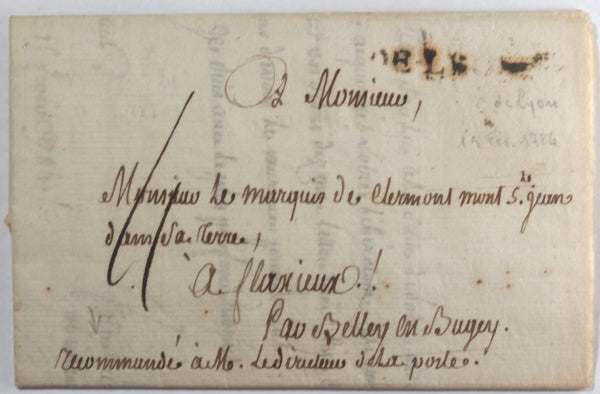 DE LY
A Monsieur,
de Lyon
15 fév. 1784
Monsieur Le marquis de Clermont mont St. jean
dans Sa Terre,
à flaxieux /.
Par Belley en Bugey.
recommandé à M. Le directeur de La poste.